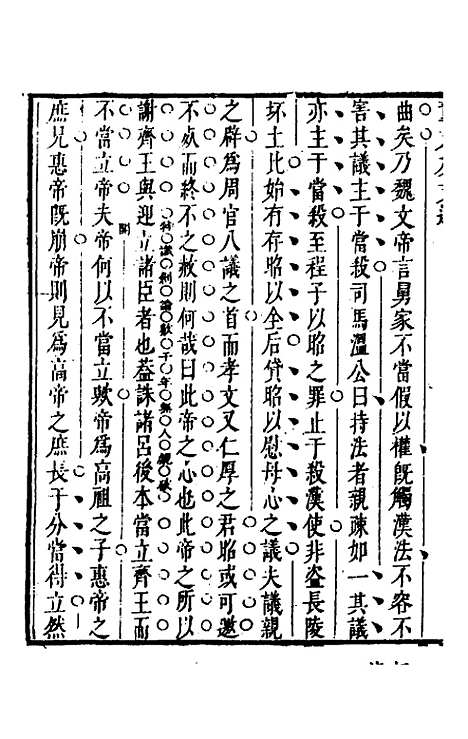 曲矣乃魏文帝言舅家不當假以權既觸漢法不容不
害其議主于當殺司馬溫公曰持法者親疎如一其議
亦主于當殺至程子以昭之罪止于殺漢使非盜長陵
抔土比始有存昭以全后貸昭以慰母心之議夫議親
之辟為周官八議之首而孝文又仁厚之君昭或可邀
不㱾而終不之赦則何哉曰此帝之心也此帝之所以
特識創論數千年無人覷破
謝齊王與迎立諸臣者也葢誅諸呂後本當立齊王而
不當立帝夫帝何以不當立歟帝為高祖之子惠帝之
庶兄惠帝既崩帝則見為高帝之庶長于分當得立然